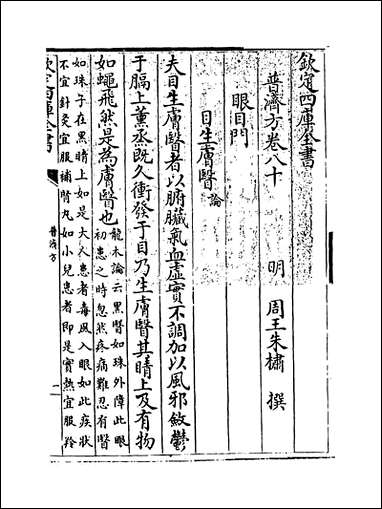 欽定四庫全書
普濟方卷八十
明 周王朱橚 撰
眼目門
目生膚翳論
夫目生膚翳者以腑臟氣血虛實不調加以風邪斂鬱
于膈上薰蒸既久衝發于目乃生膚翳其睛上及有物
如蠅飛然是為膚翳也龍木論云黑翳如珠外障此眼
初患之時忽然疼痛難忍有翳
如珠子在黑睛上如是大人患者毒風入眼如此疾狀
不宜針灸宜服補腎丸如小兒患者即是實熱宜服羚
欽定四庫全書
普濟方
一